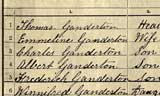 1 Thomas Ganderton Head
2 Emmeline Ganderton Wife
3 Charles Ganderton Son
4 Albert Ganderton Son
5 Frederick Ganderton Son
6 Winnifred Ganderton Daug